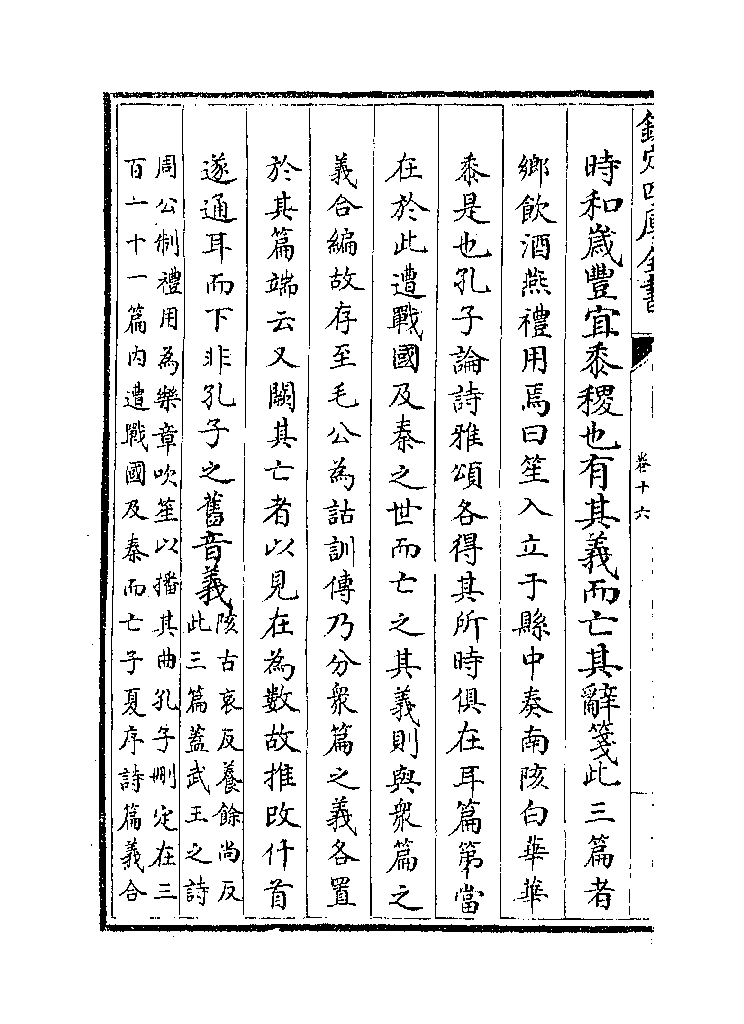 欽定四庫全書
卷十六
時和嵗豐宜黍稷也有其義而亡其辭箋此三篇者
鄉飲酒燕禮用焉曰笙入立于縣中奏南陔白華華
黍是也孔子論詩雅頌各得其所時俱在耳篇第當
在於此遭戰國及秦之世而亡之其義則與衆篇之
義合編故存至毛公為詁訓傳乃分衆篇之義各置
於其篇端云又闕其亡者以見在為數故推改什首
遂通耳而下非孔子之舊音義陔古哀反養餘尚反
此三篇蓋武王之詩
周公制禮用為樂章吹笙以播其曲孔子刪定在三
百一十一篇内遭戰國及秦而亡子夏序詩篇義合